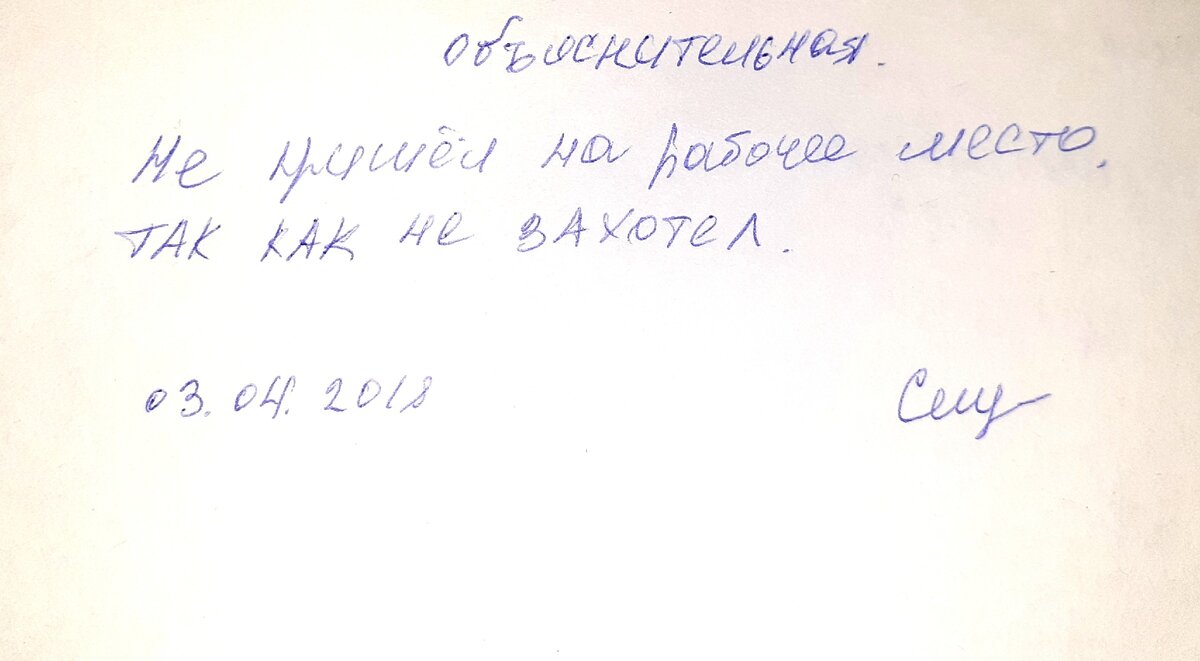 объяснительная.
Не пришёл на рабочее место,
ТАК КАК не ЗАХОТЕЛ.
03.04.2018